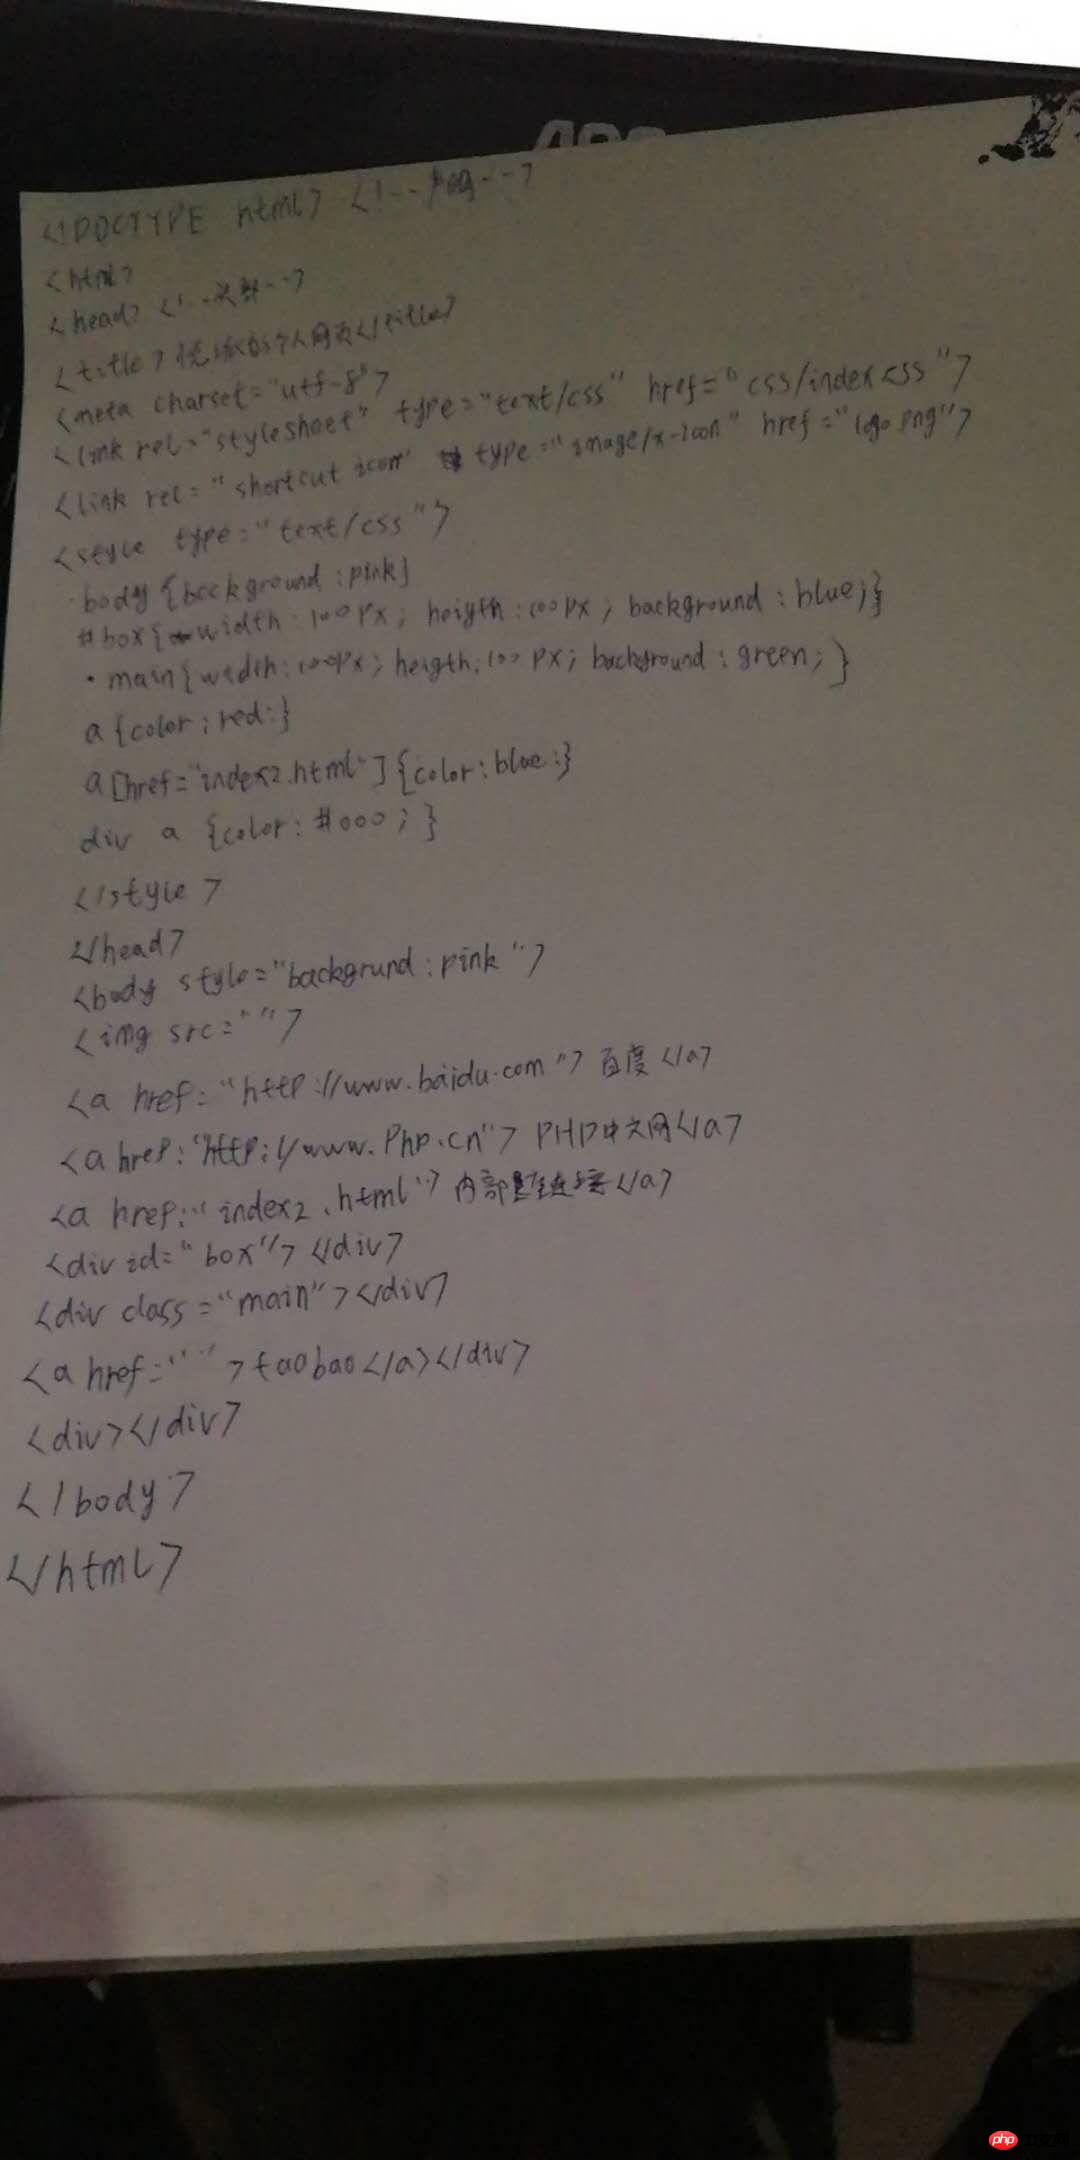 <!DOCTYPE html> <!-- -->
<html>
<head> <!--头部-->
<title> 的个人网页</title>
<meta charset="utf-8">
<link rel="stylesheet" type="text/css" href="css/index.css">
<link rel="shortcut icon" type="image/x-icon" href="logo.png">
<style type="text/css">
body{background:pink}
#box{width:100px; heigth:100px; background:blue;}
.main{width:100px; heigth:100px; background:green;}
a{color;red:}
a[href="index2.html"]{color:blue:}
div a {color:#000;}
</style>
</head>
<body style="backgrund:pink">
<img src="">
<a href="http://www.baidu.com">百度</a>
<a href:"http://www.Php.cn">PHP中文网</a>
<a href:"index2.html">内部链接</a>
<div id="box"></div>
<div class="main"></div>
<a href="">taobao</a></div>
<div></div>
</body>
</html>
php